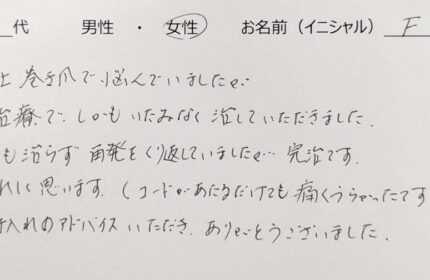 代 男性 ・ 女性 お名前(イニシャル) F
上 巻き爪で悩んでいましたが…
治療で、しかもいたみなく治していただきました.
も治らず 再発をくり返していましたが… 完治です.
れしく思います. (コードがあたるだけでも痛くつらかったです
手入れのアドバイスいただき、ありがとうございました.